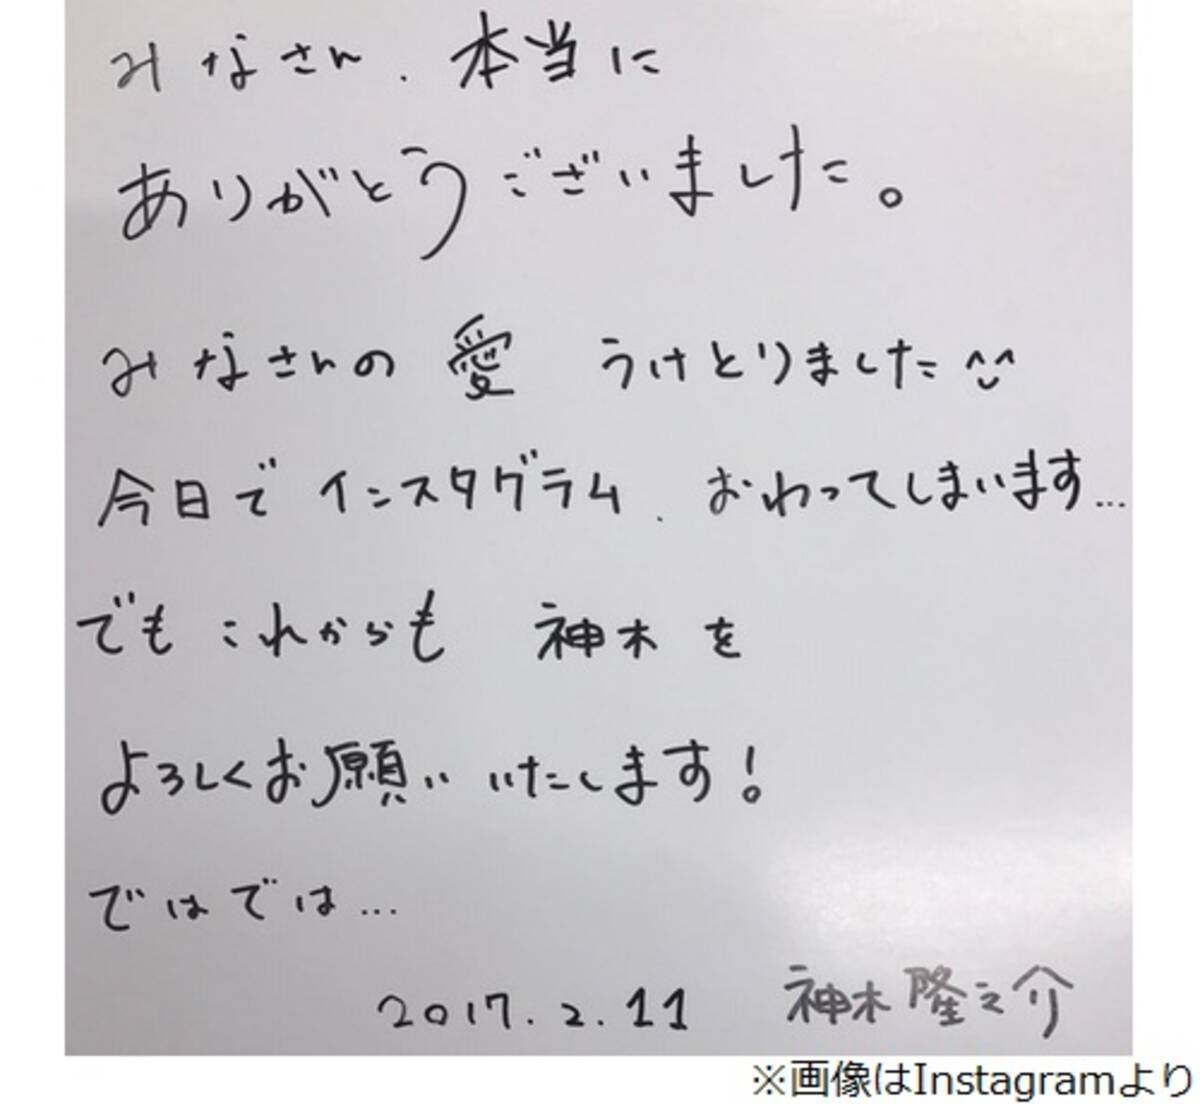 みなさん、本当に
ありがとうございました。
みなさんの愛 うけとりました^^
今日でインスタグラム、おわってしまいます...
でもこれからも 神木を
よろしくお願いいたします!
ではでは...
2017.2.11 神木隆之介
※画像はInstagramより